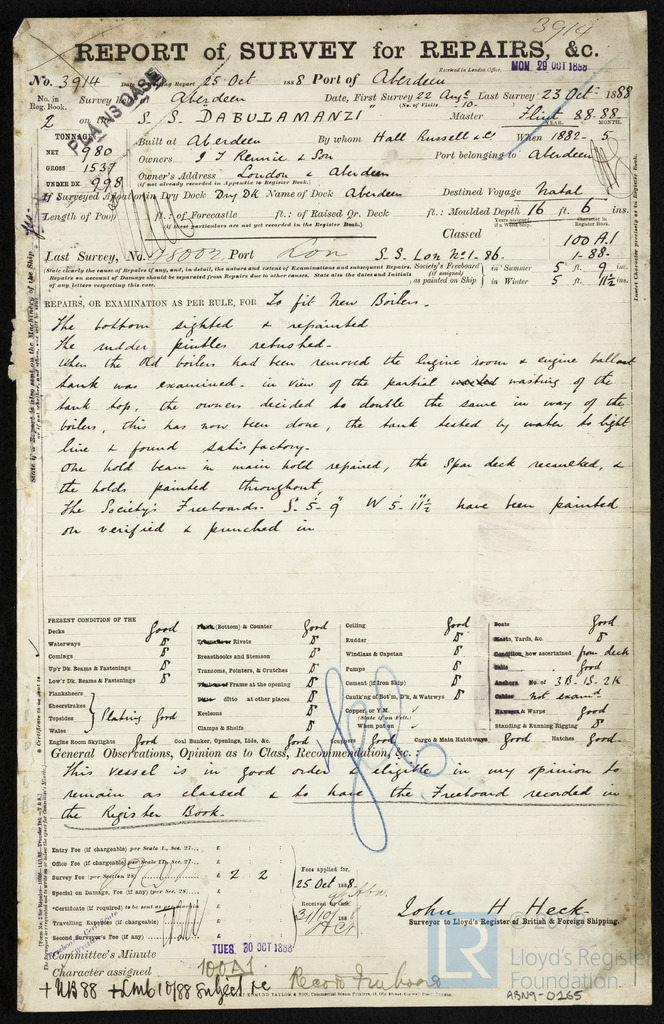 3914
REPORT of SURVEY for REPAIRS, &c.
Received in London Office, MON. 29 OCT 1888
No. 3914 Date of writing Report 25 Oct 1888 Port of Aberdeen
No. in Reg. Book. Survey held at Aberdeen Date, First Survey 22 Augt Last Survey 23 Octr 1888
(No. of Visits 10)
2 on the S. S. "DABULAMANZI" Master Flint 88-88
PLAINS CASE
TONNAGE Built at Aberdeen By whom Hall Russell & Co When 1882-5
YEAR. MONTH.
NET 980
GROSS 1537 Owners J T Rennie & Son Port belonging to Aberdeen
UNDER DK 998 Owner's Address London & Aberdeen
(if not already recorded in Appendix to Register Book.)
If Surveyed Afloat or in Dry Dock Dry Dk Name of Dock Aberdeen Destined Voyage Natal
Length of Poop ft.: of Forecastle ft.: of Raised Qr. Deck ft.: Moulded Depth 16 ft. 6 ins.
(if these particulars are not yet recorded in the Register Book.)
Classed 100 A.1
Last Survey, No. 48002 Port Lon S.S. Lon No1-86 1-88-
(State clearly the cause of Repairs, if any, and, in detail, the nature and extent of Examinations and subsequent Repairs. Repairs on account of Damage should be separated from Repairs due to other causes. State also the dates and Initials of any letters respecting this case.
Society's Freeboard (if assigned) as painted on Ship in Summer 5 ft. 9 ins.
in Winter 5 ft. 11½ ins.
REPAIRS, OR EXAMINATION AS PER RULE, FOR To fit New Boilers.
The bottom sighted & repainted
The rudder pintles rebushed.
When the old boilers had been removed the Engine room & engine ballast
tank was examined. in view of the partial wasting of the
tank top, the owners decided to double the same in way of the
boilers, this has now been done, the tank tested by water to light
line & found satisfactory.
One hold beam in main hold repaired, the Spar deck recaulked, &
the holds painted throughout,
The Society's Freeboards. S. 5'-9" W 5'-11½" have been painted
on verified & punched in
PRESENT CONDITION OF THE
Decks Good
Waterways Do
Comings Do
Up'r Dk. Beams & Fastenings Do
Low'r Dk. Beams & Fastenings Do
Planksheers
Sheerstrakes
Topsides
Wales
Plating Good
Engine Room Skylights Good
Plank (Bottom) & Counter Good
Rivets Do
Breasthooks and Stemson Do
Transoms, Pointers, & Crutches Do
Frame at the opening Do
ditto at other places Do
Keelsons Do
Clamps & Shelfs Do
Coal Bunker, Openings, Lids, &c. Good
Ceiling Good
Rudder Do
Windlass & Capstan Do
Pumps Do
Cement (if Iron Ship) Do
Caulking of Bot'm, D'k, & Watrwys Do
Copper, or Y.M. ✓
(State if on Felt.)
When put on ✓
Scuppers Good Cargo & Main Hatchways Good Hatches Good
Boats Good
Masts, Yards, &c. Do
Condition, how ascertained from deck
Sails Good
Anchors No. of 3B-1S-2K
Cables not examd
Hawsers & Warps Good
Standing & Running Rigging Do
General Observations, Opinion as to Class, Recommendation, &c.:
This vessel is in good order & eligible in my opinion to
remain as classed & to have the Freeboard recorded in
the Register Book.
Entry Fee (if chargeable) per Scale I., Sec. 27... £
Office Fee (if chargeable) per Scale II., Sec. 27... £
Survey Fee (per Section 28) £ 2 2
Special on Damage, Fee (if any) (per Sec. 28) £
*Certificate (if required) to be sent or as under £
Travelling Expenses (if chargeable) £
Second Surveyor's Fee (if any) £
Fees applied for, 25 Oct 1888
Received by Cash 31/10/1888
John H Heck.
Surveyor to Lloyd's Register of British & Foreign Shipping.
Committee's Minute TUES 30 OCT 1888
Character assigned 100A1
+NB88 +LMC 10/88 Subject re Record Freeboard
LR
Lloyd's Register
Foundation
ABN9-0265